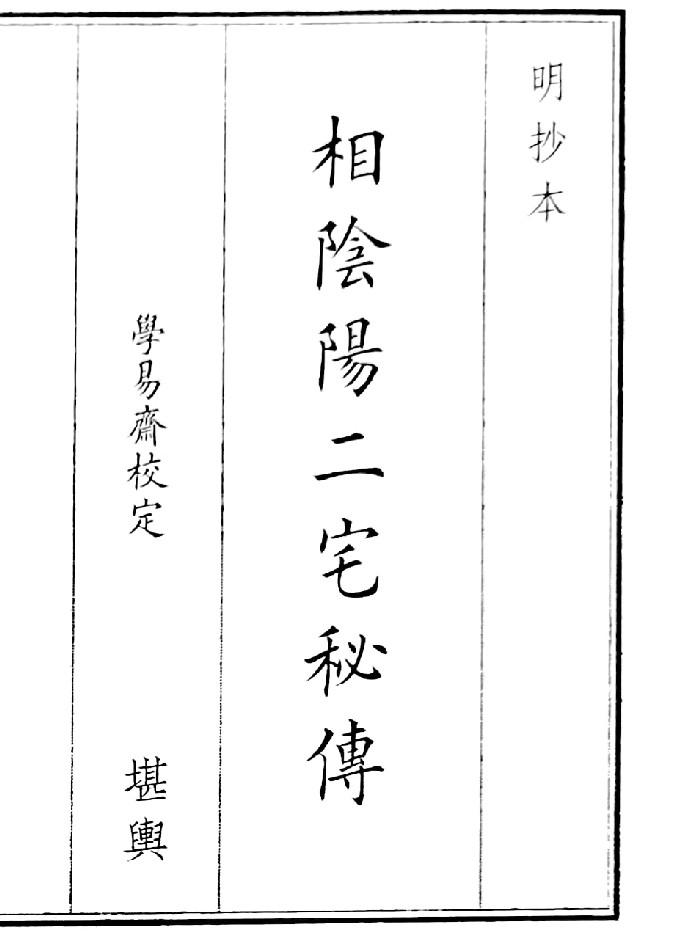 明抄本
相陰陽二宅秘傳
學易齋校定
堪輿